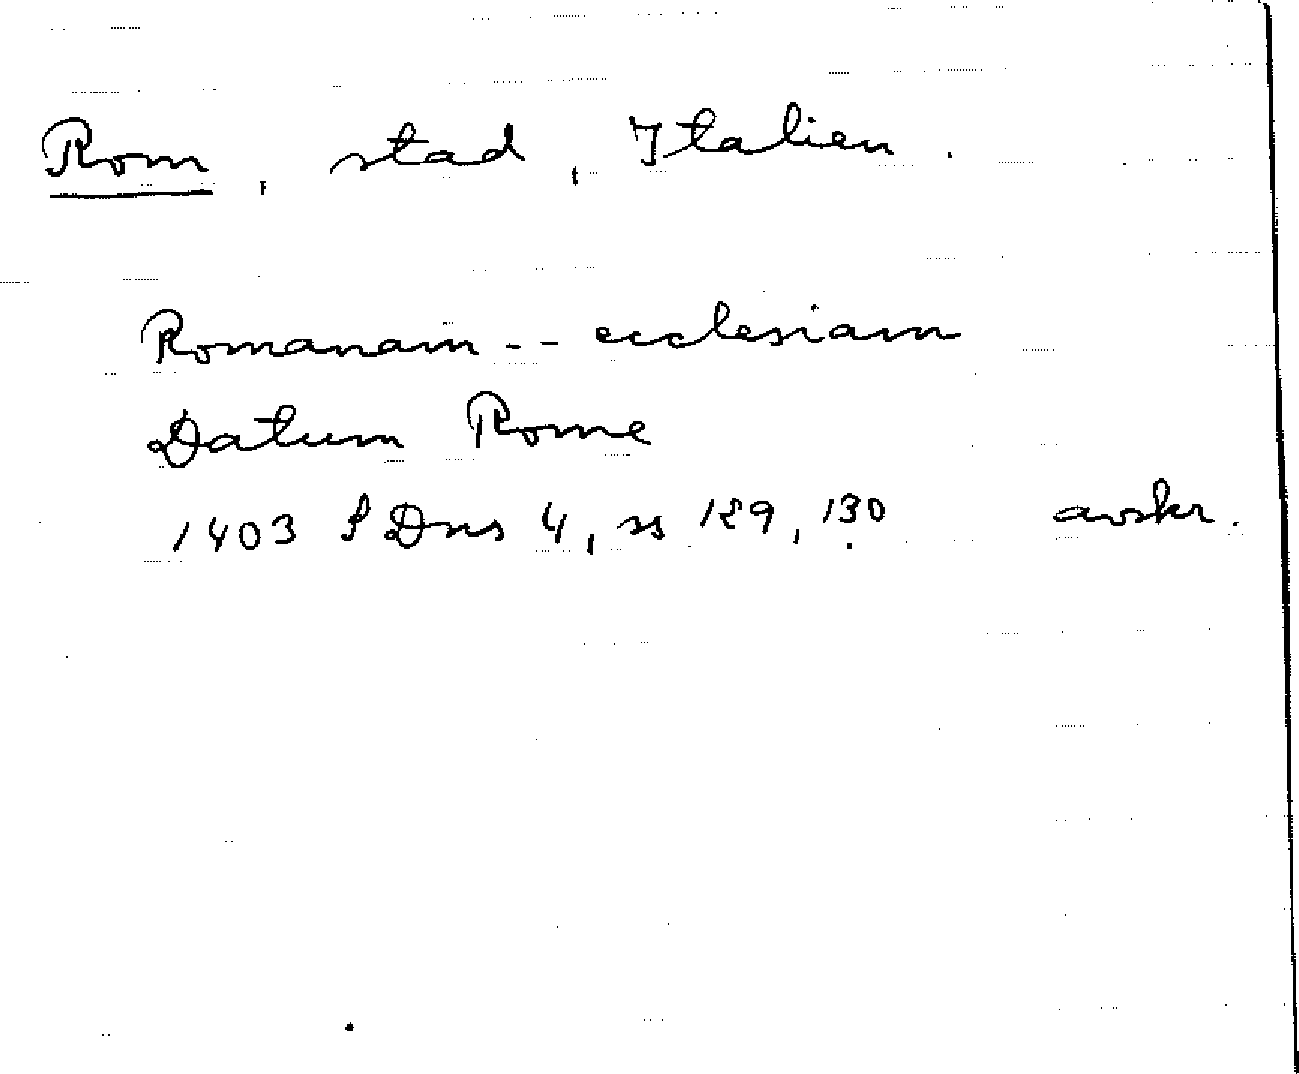 Rom, stad, Italien.
Romanam -- ecclesiam
Datum Rome
1403 P Dns 4, ss 129, 130 avskr.